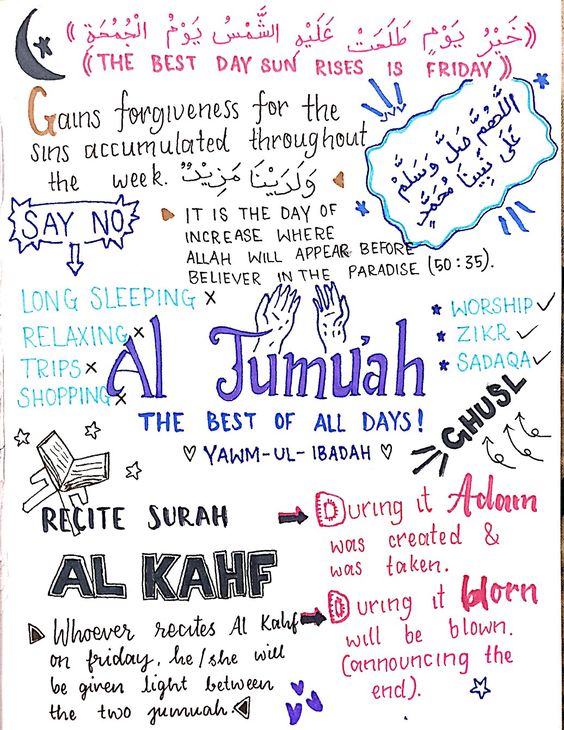 ((خَيْرُ يَوْمٍ طَلَعَتْ عَلَيْهِ الشَّمْسُ يَوْمُ الْجُمُعَةِ))
((THE BEST DAY SUN RISES IS FRIDAY))
Gains forgiveness for the
sins accumulated throughout
the week. وَلَدَيْنَا مَزِيدٌ
اللَّهُمَّ صَلِّ وَسَلِّمْ
عَلَى نَبِيِّنَا مُحَمَّدٍ
IT IS THE DAY OF
INCREASE WHERE
ALLAH WILL APPEAR BEFORE
BELIEVER IN THE PARADISE (50:35).
SAY NO
LONG SLEEPING ×
RELAXING ×
TRIPS ×
SHOPPING ×
* WORSHIP ✓
* ZIKR ✓
* SADAQA ✓
Al Jumu'ah
THE BEST OF ALL DAYS!
♡ YAWM-UL-IBADAH ♡
GHUSL
RECITE SURAH
AL KAHF
Whoever recites Al Kahf
on friday, he/she will
be given light between
the two jumuah.
During it Adam
was created &
was taken.
During it horn
will be blown.
(announcing the
end).